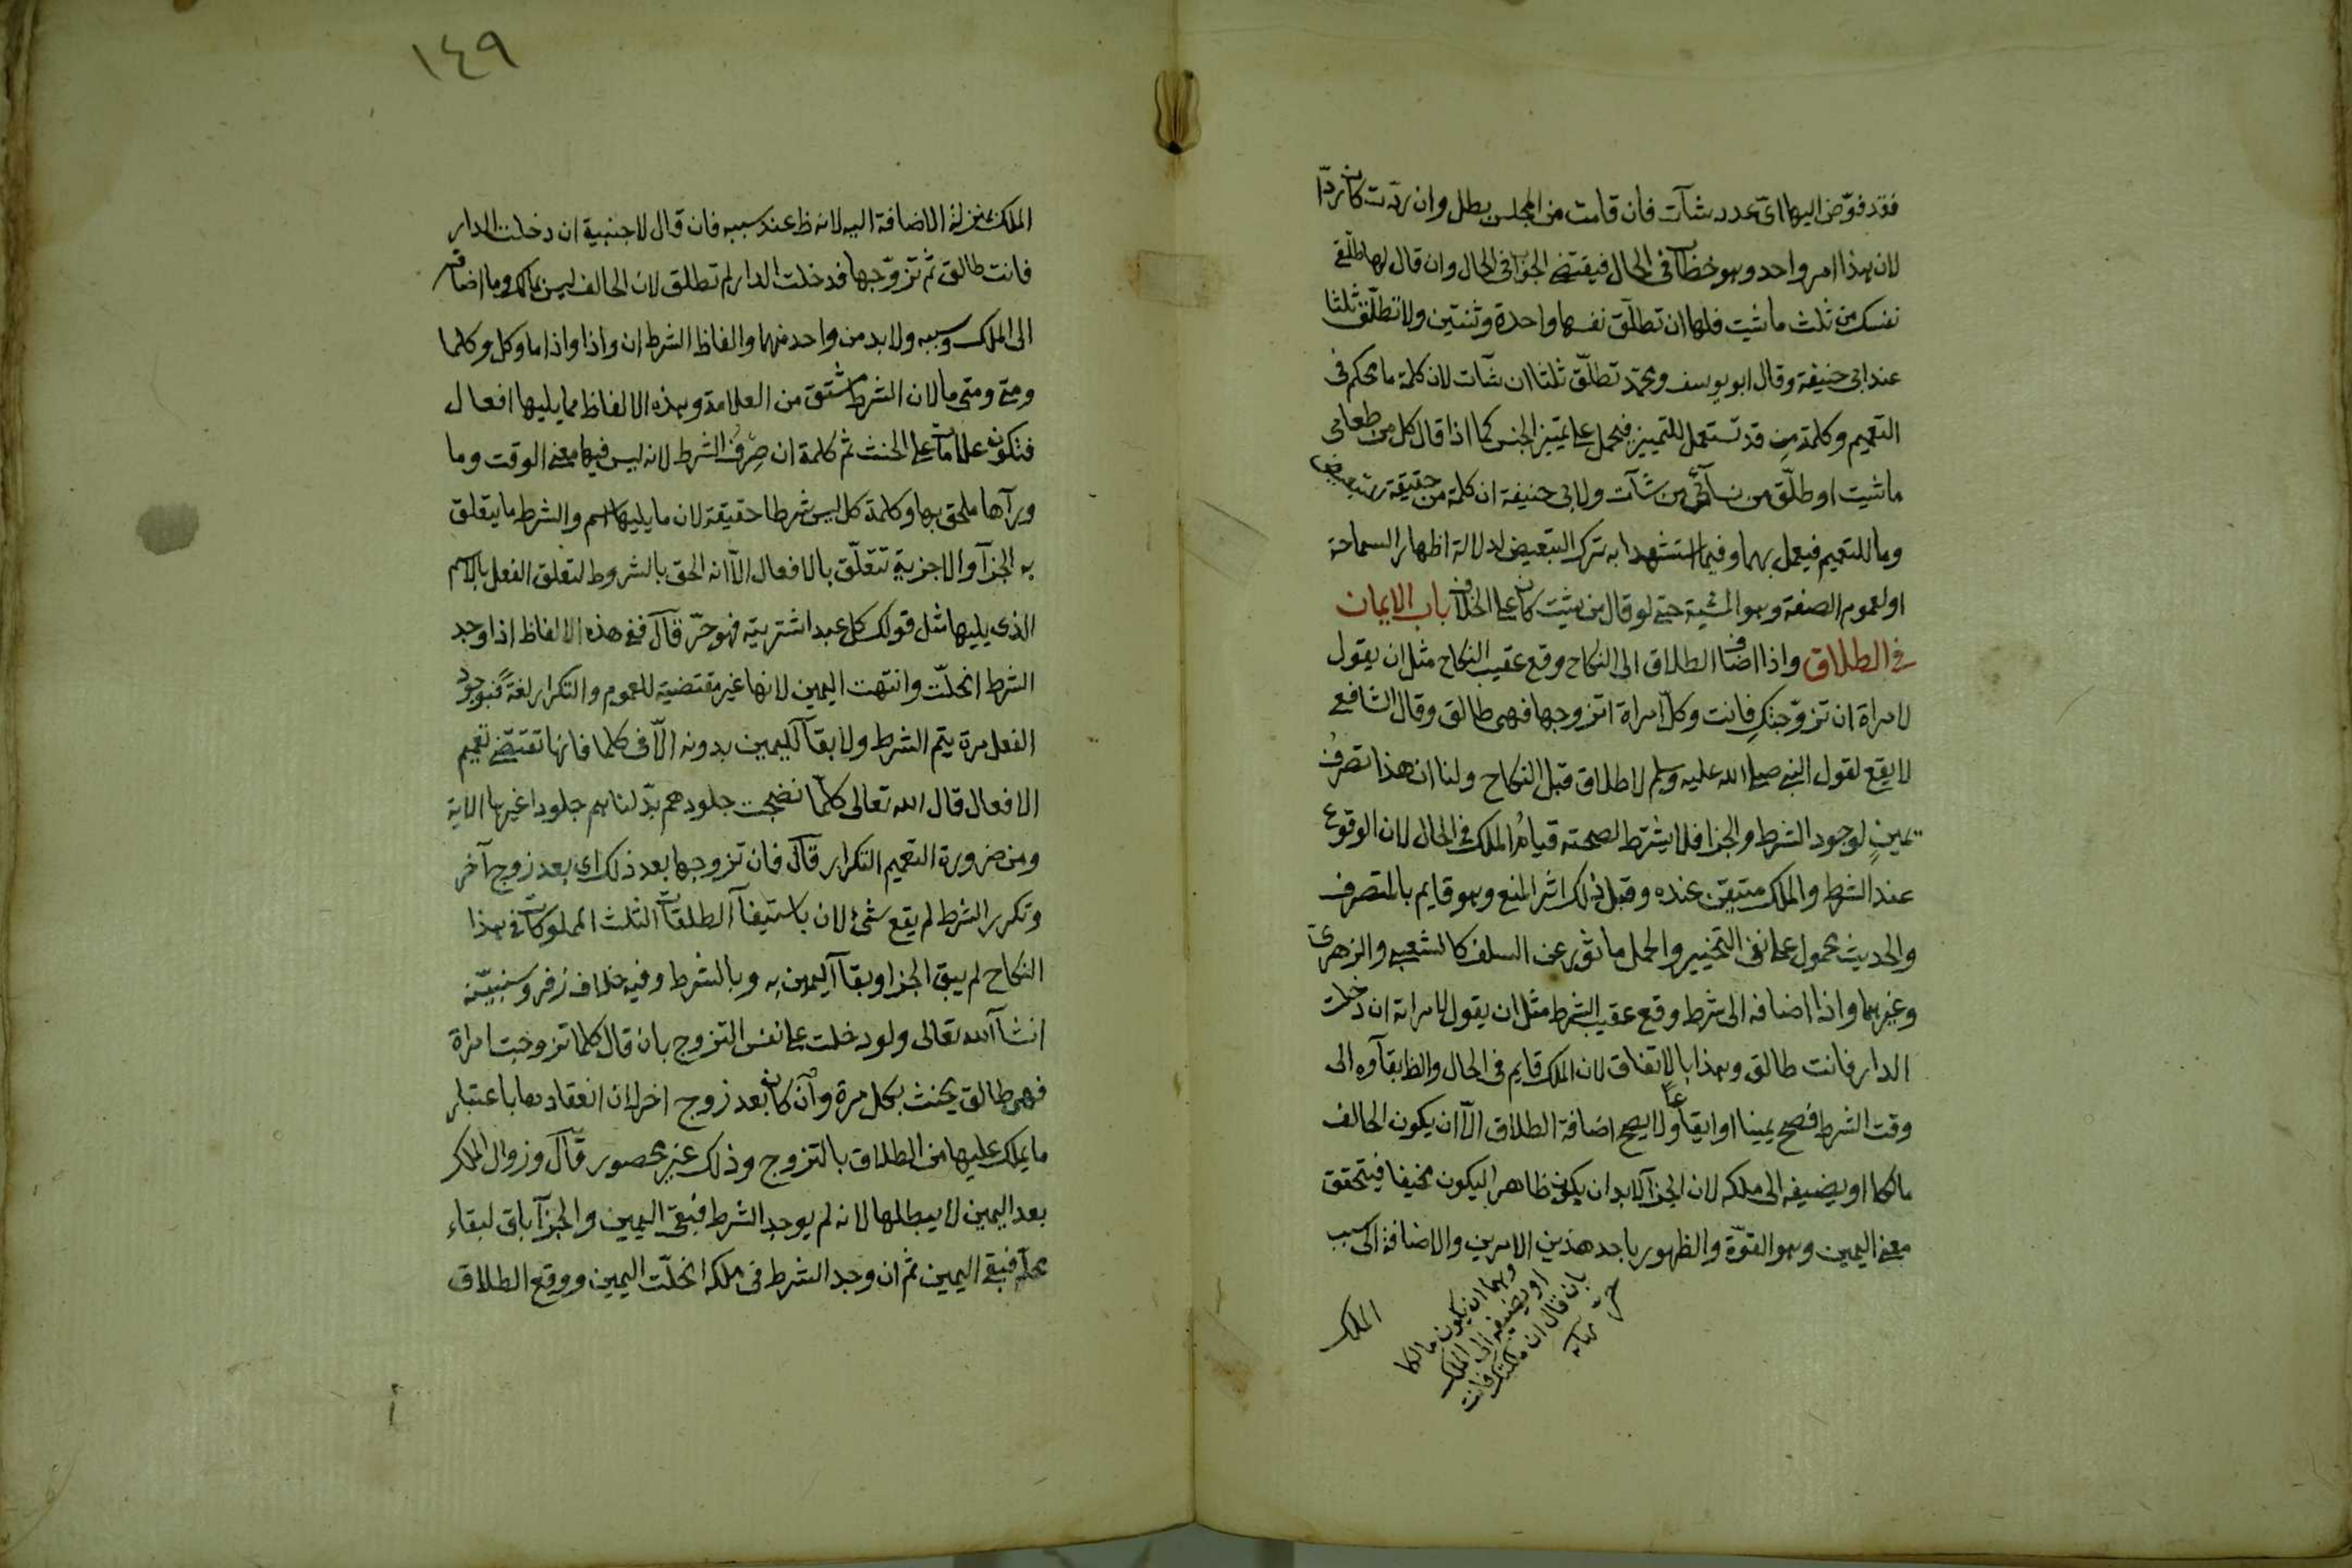 فقد فوّض اليها اىّ عدد شآت فان قامت من المجلس بطل وان ردّت كان ردّا
لان هذا امر واحد وهو خطاب فى الحال فيقتضى الجزا فى الحال وان قال لها طلّقى
نفسك من ثلث ما شيت فلها ان تطلّق نفسها واحدة وثنتين ولا تطلّق ثلثا
عند ابى حنيفة وقال ابو يوسف ومحمّد تطلّق ثلثا ان شآت لان كلمة ما محكم فى
التعميم وكلمة من قد تستعمل للتمييز فيحمل على تمييز الجنس كما اذا قال كل من طعامى
ما شيت او طلّق من نسآئى من شآت ولابى حنيفة ان كلمة من حقيقة للتبعيض
وما للتعميم فيعمل بهما وفيما استشهدا به ترك التبعيض لدلالة اظهار السماحة
او لعموم الصفة وهو المشية حتى لو قال من شيت كان على الخلاف باب الايمان
فى الطلاق واذا اضاف الطلاق الى النكاح وقع عقيب النكاح مثل ان يقول
لامراة ان تزوّجتكِ فانت وكلّ امراة اتزوجها فهى طالق وقال الشافعى
لا يقع لقول النبى صلى الله عليه وسلم لا طلاق قبل النكاح ولنا ان هذا تصرفُ
يمينٍ لوجود الشرط والجزا فلا يشترط لصحته قيامُ الملك فى الحال لان الوقوع
عند الشرط والملك متيقن عنده وقبل ذلك اثر المنع وهو قايم بالمتصرف
والحديث محمول على نفى التخيير والحمل ماثور عن السلف كالشعبى والزهرى
وغيرهما واذا اضافه الى شرط وقع عقيب الشرط مثل ان يقول لامراته ان دخلت
الدار فانت طالق وهذا بالاتفاق لان الملك قايم فى الحال والظ بقآوه الى
وقت الشرط فصح يمينا او ايقاعا ولا يصح اضافة الطلاق الّا ان يكون الحالف
مالكا او يضيفه الى ملكه لان الجزآ لا بد ان يكون ظاهرا ليكون مخيفا فيتحقق
معنى اليمين وهو القوّة والظهور باحد هذين الامرين والاضافة الى سبب
وهما ان يكون مالكا
او يضيفه الى الملك
بان قال ان ملكتك فانت
الملك
١٤٩
الملك بمنزلة الاضافة اليه لانه ظ عند سببه فان قال لاجنبية ان دخلت الدار
فانت طالق ثم تزوّجها فدخلت الدار لم تطلق لان الحالف ليس بمالك وما اضافه
الى الملك وسببه ولا بد من واحد منهما والفاظ الشرط ان واذا واذا ما وكل وكلما
ومتى ومتى ما لان الشرط مشتق من العلامة وهذه الالفاظ مما يليها افعال
فتكون علامات على الحنث ثم كلمة ان صِرفُ الشرط لانه ليس فيها معنى الوقت وما
ورآها ملحق بها وكلمة كل ليس شرطا حقيقة لان ما يليها اسم والشرط ما يتعلق
به الجزآ والاجزية تتعلّق بالافعال الّا انه الحق بالشروط لتعلق الفعل بالاسم
الذى يليها مثل قولك كل عبد اشتريته فهو حرّ قال ففى هذه الالفاظ اذا وجد
الشرط انحلّت وانتهت اليمين لانها غير مقتضية للعموم والتكرار لغةً فبوجود
الفعل مرة يتم الشرط ولا بقآ لليمين بدونه الّا فى كلما فانها تقتضى تعميم
الافعال قال الله تعالى كلّما نضجت جلودهم بدّلناهم جلودا غيرها الاية
ومن ضرورة التعميم التكرار قال فان تزوجها بعد ذلك اى بعد زوج آخر
وتكرر الشرط لم يقع شئ لان باستيفآ الطلقات الثلث المملوكات فى هذا
النكاح لم يبق الجزا وبقآ اليمين به وبالشرط وفيه خلاف زفر وسنبيّنه
انشآ الله تعالى ولو دخلت على نفس التزوج بان قال كلما تزوجت امراة
فهى طالق يحنث بكل مرة وان كان بعد زوج اخر لان انعقادها باعتبار
ما يملك عليها من الطلاق بالتزوج وذلك غير محصور قال وزوال الملك
بعد اليمين لا يبطلها لانه لم يوجد الشرط فبقى اليمين والجزآ باق لبقاء
محله فبقى اليمين ثم ان وجد الشرط فى ملكه انحلّت اليمين ووقع الطلاق